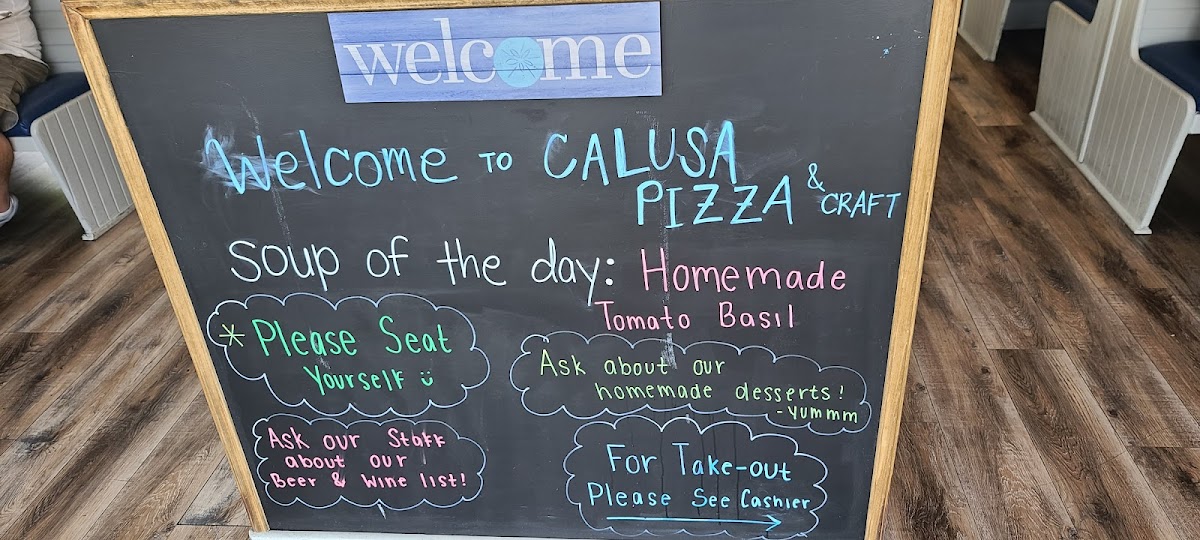 welcome
Welcome TO CALUSA
PIZZA & CRAFT
Soup of the day: Homemade
Tomato Basil
* Please Seat
Yourself
Ask about our
homemade desserts!
-Yummm
Ask our Staff
about our
Beer & Wine list!
For Take-out
Please See Cashier